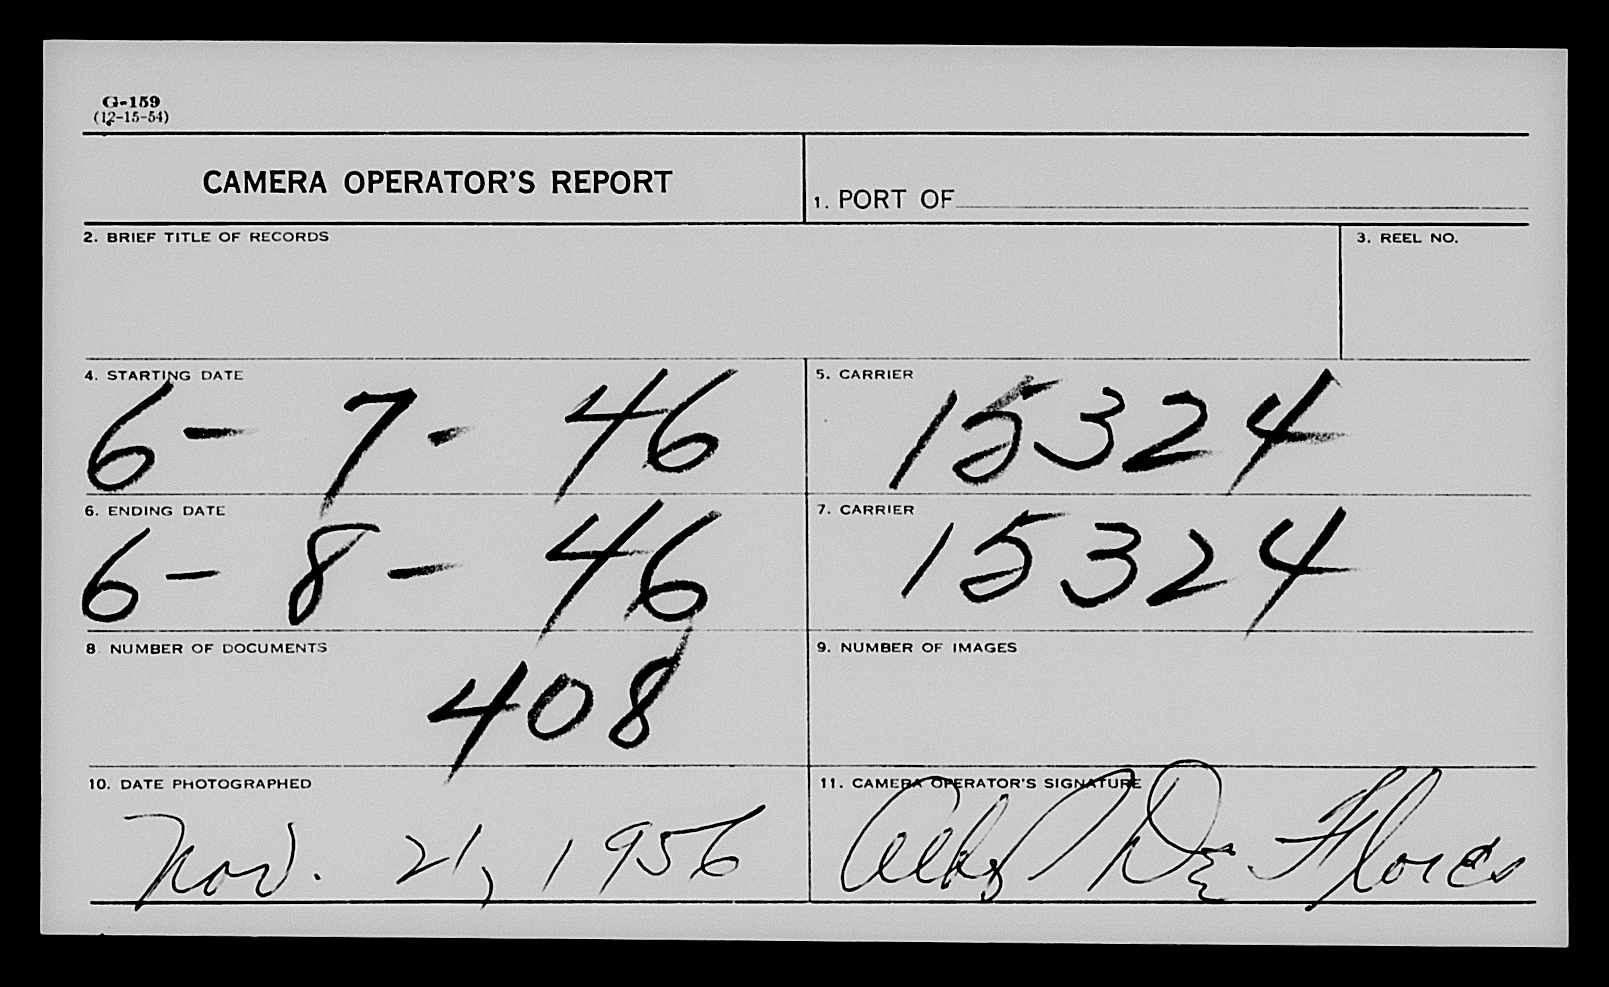 G-159
(12-15-54)
CAMERA OPERATOR'S REPORT
1. PORT OF
2. BRIEF TITLE OF RECORDS
3. REEL NO.
4. STARTING DATE
6- 7- 46
5. CARRIER
15324
6. ENDING DATE
6- 8- 46
7. CARRIER
15324
8 NUMBER OF DOCUMENTS
408
9. NUMBER OF IMAGES
10. DATE PHOTOGRAPHED
Nov. 21, 1956
11. CAMERA OPERATOR'S SIGNATURE
De Flores